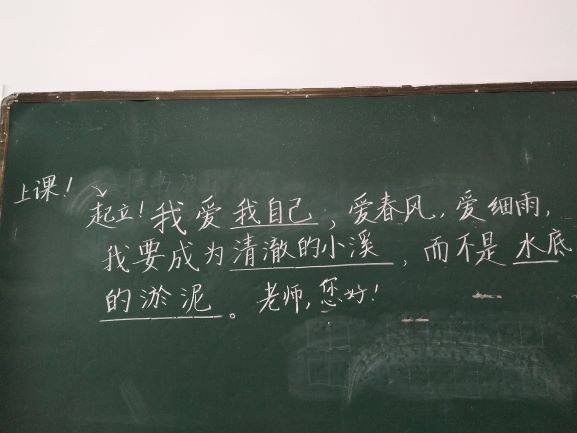 上课！
起立！我爱我自己，爱春风，爱细雨，
我要成为清澈的小溪，而不是水底
的淤泥。老师，您好！